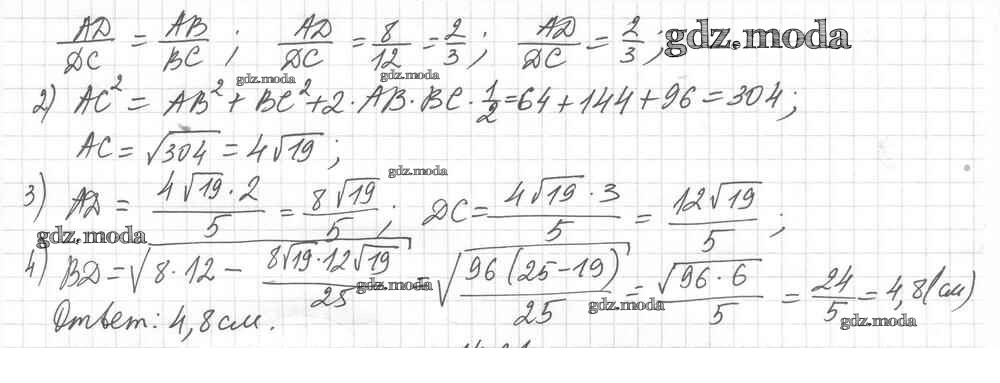 AD/DC = AB/BC ; AD/DC = 8/12 = 2/3 ; AD/DC = 2/3 ; gdz.moda
gdz.moda gdz.moda
2) AC² = AB² + BC² + 2 · AB · BC · 1/2 = 64 + 144 + 96 = 304 ;
AC = √304 = 4√19 ;
gdz.moda
3) AD = 4√19 · 2/5 = 8√19/5 ; DC = 4√19 · 3/5 = 12√19/5 ;
gdz.moda
4) BD = √(8 · 12 − 8√19 · 12√19/25) = √(96(25 − 19)/25) = √(96 · 6)/5 = 24/5 = 4,8 (см)
gdz.moda gdz.moda gdz.moda
Ответ: 4,8 см.